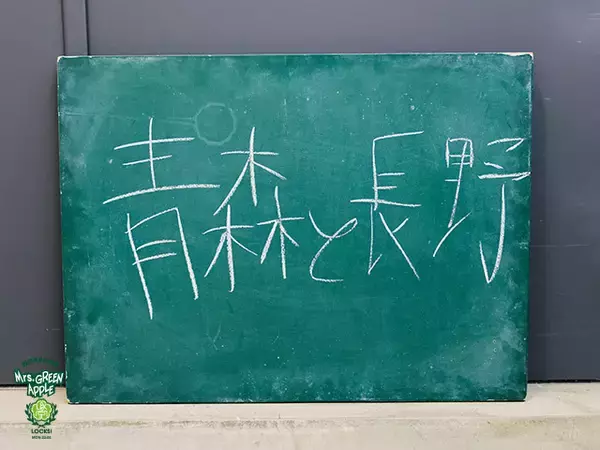 青森と長野
Mrs. GREEN
APPLE
LOCKS!